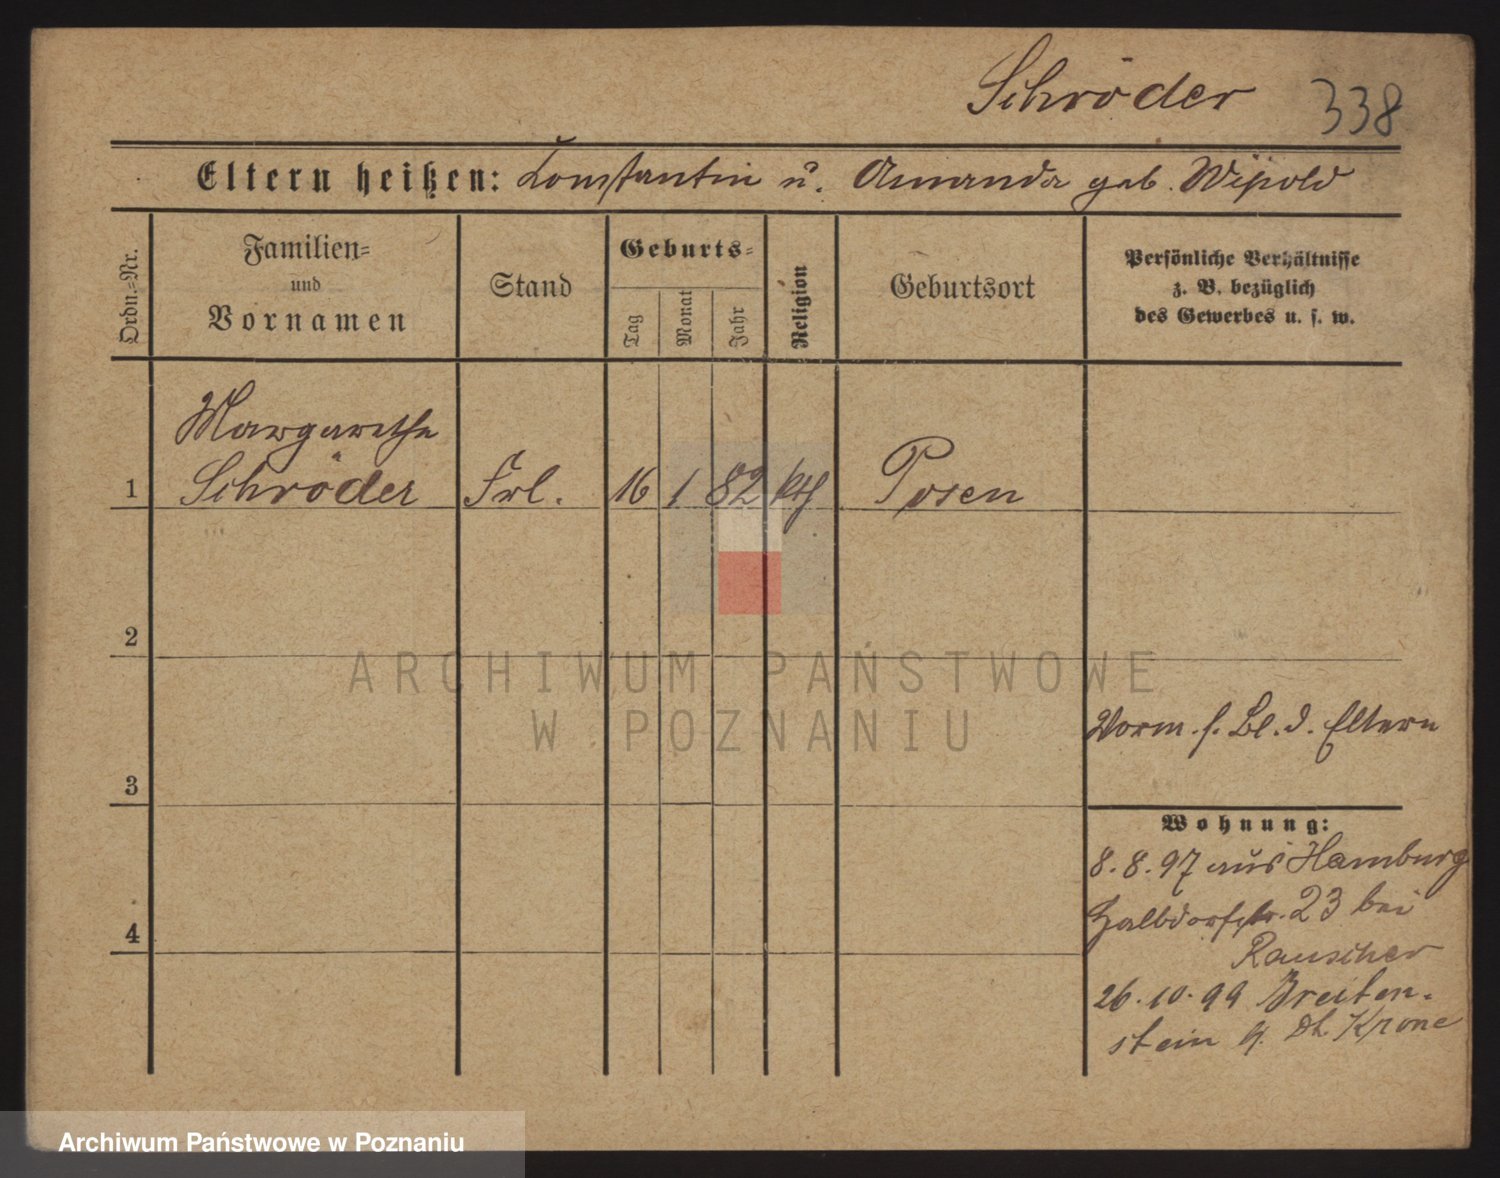 Schröder 338
Eltern heißen: Konstantin u. Amanda geb. Wipold
Ordn.=Nr.
Familien=
und
Vornamen
Stand
Geburts=
Tag
Monat
Jahr
Religion
Geburtsort
Persönliche Verhältnisse
z. B. bezüglich
des Gewerbes u. s. w.
Margarethe
1 Schröder Frl. 16 1 82 kth Posen
2
ARCHIWUM PAŃSTWOWE
W POZNANIU
Vorm. s. Bl. d. Eltern
3
Wohnung:
8.8.97 aus Hamburg
Halbdorfstr. 23 bei
Rauscher
4
26.10.99 Breiten-
stein b. Dt. Krone
Archiwum Państwowe w Poznaniu